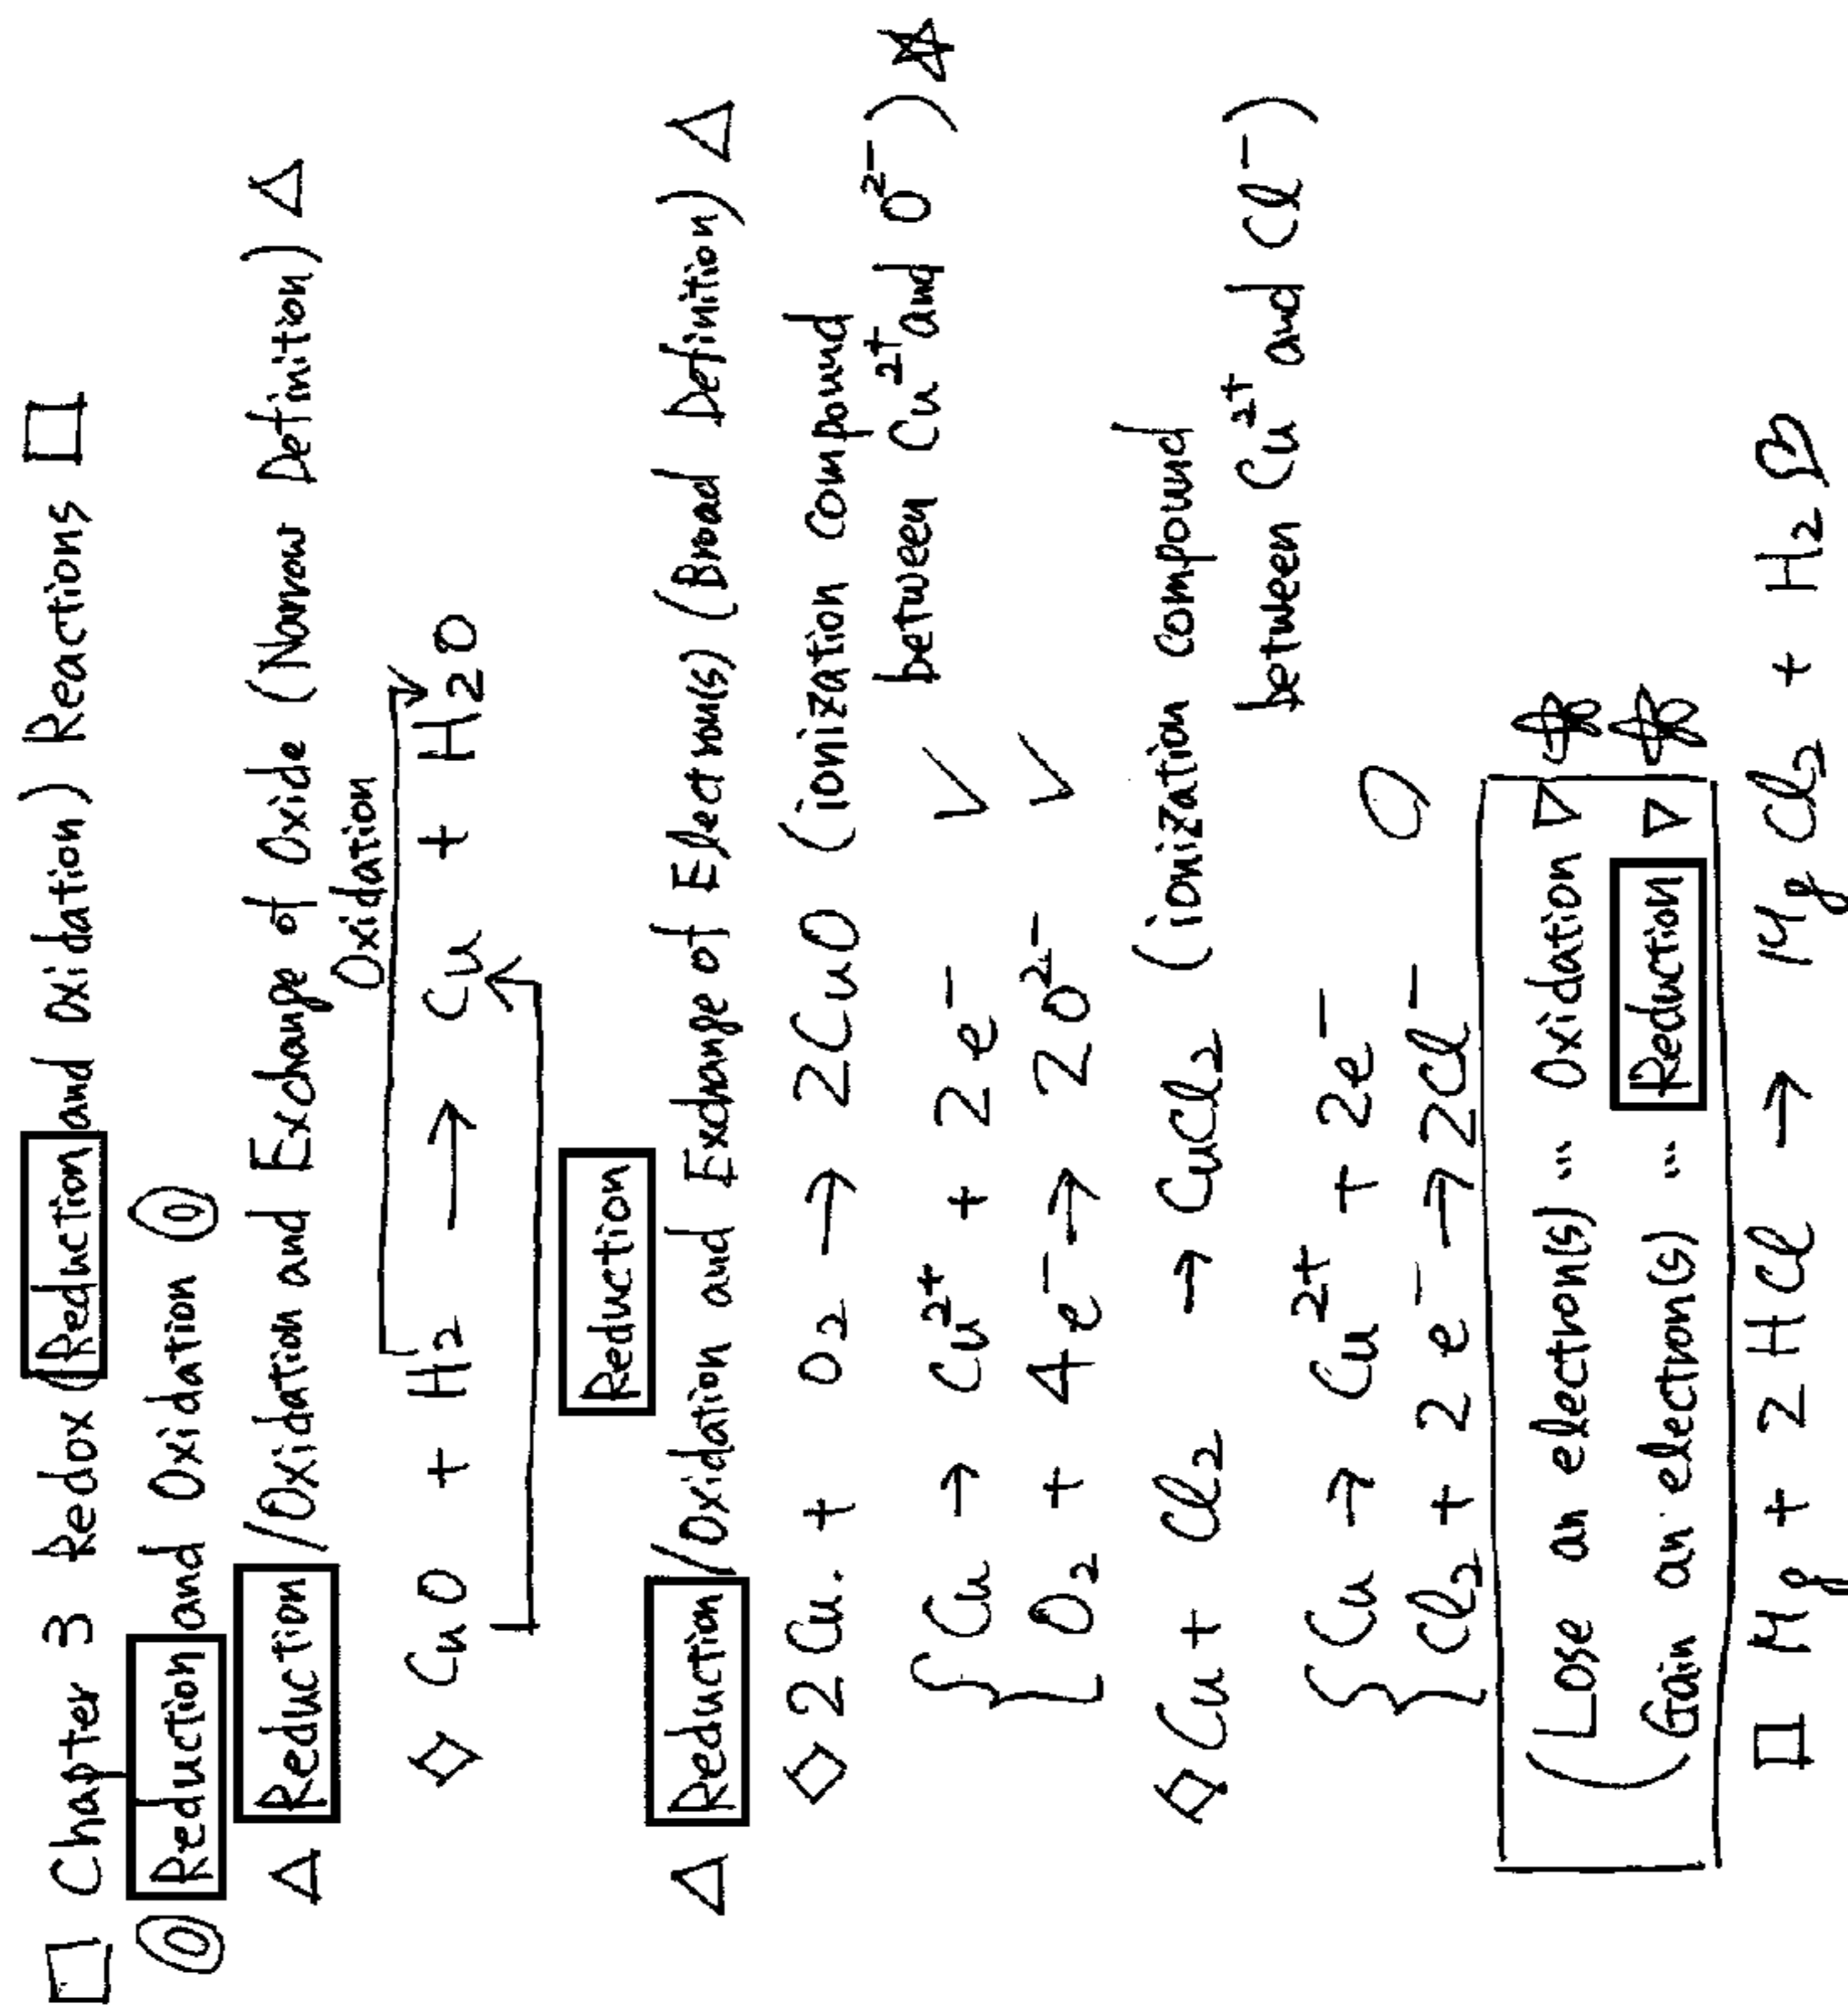 □ Chapter 3 Redox (Reduction and Oxidation) Reactions □
◎ Reduction and Oxidation ◎
△ Reduction//Oxidation and Exchange of Oxide (Narrow Definition) △
Oxidation
◇ CuO + H₂ → Cu + H₂O
Reduction
△ Reduction//Oxidation and Exchange of Electron(s) (Broad Definition) △
◇ 2Cu. + O₂ → 2CuO (ionization compound
between Cu²⁺ and O²⁻) ☆
{ Cu → Cu²⁺ + 2e⁻ ✓
O₂ + 4e⁻ → 2O²⁻ ✓
◇ Cu + Cl₂ → CuCl₂ (ionization compound
between Cu²⁺ and Cl⁻)
{ Cu → Cu²⁺ + 2e⁻
Cl₂ + 2e⁻ → 2Cl⁻
(Lose an electron(s) … Oxidation ▽
Gain an electron(s) … Reduction ▽
□ Mg + 2HCl → MgCl₂ + H₂